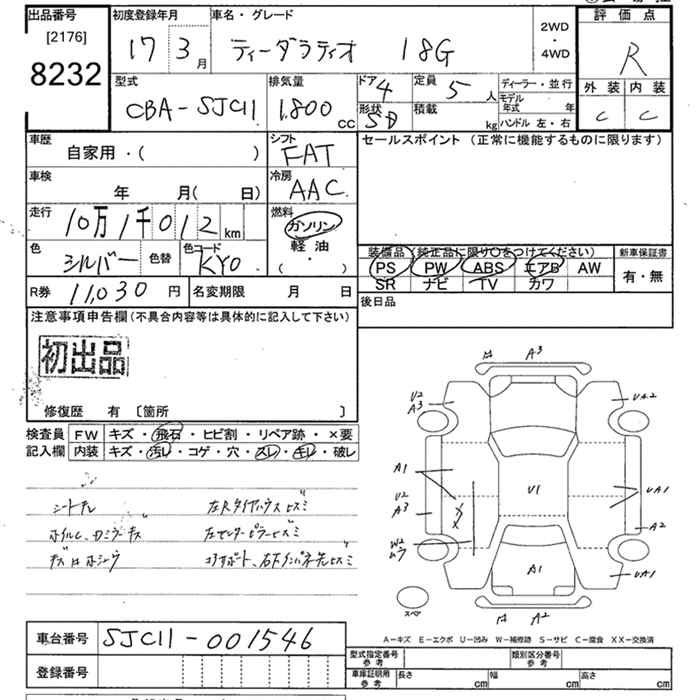 出品番号
[2176]
8232
初度登録年月
17 3月
車名・グレード
ティーダラティオ 18G
2WD
・
4WD
評価点
R
外装 内装
C C
型式
CBA-SJC11
排気量
1,800 cc
ドア 4
形状 SD
定員 5 人
積載 kg
ディーラー・並行
モデル年式 年
ハンドル 左・右
車歴
自家用・( )
シフト
FAT
セールスポイント (正常に機能するものに限ります)
車検
年 月( 日)
冷房
AAC
走行
10万1千012km
燃料
ガソリン
軽油
( ・ )
色
シルバー
色替
色コード
KY0
装備品(純正品に限り○をつけてください)
PS PW ABS エアB AW
SR ナビ TV カワ
新車保証書
有・無
R券 11,030円
名変期限 月 日
後日品
注意事項申告欄(不具合内容等は具体的に記入して下さい)
初出品
修復歴 有 〔箇所 〕
検査員記入欄
FW キズ・飛石・ヒビ割・リペア跡・×要
内装 キズ・汚レ・コゲ・穴・スレ・キレ・破レ
左Rタイヤハウスヒズミ
左センターピラーヒズミ
A3
U2
A3
UA2
A1
U2
A3
U1
UA1
A2
W2
A1
UA1
A2
スペア
A-キズ E-エクボ U-凹み W-補修跡 S-サビ C-腐食 XX-交換済
車台番号 SJC11-001546
登録番号
型式指定番号 参考
類別区分番号 参考
車庫証明用 参考
長さ cm
幅 cm
高さ cm